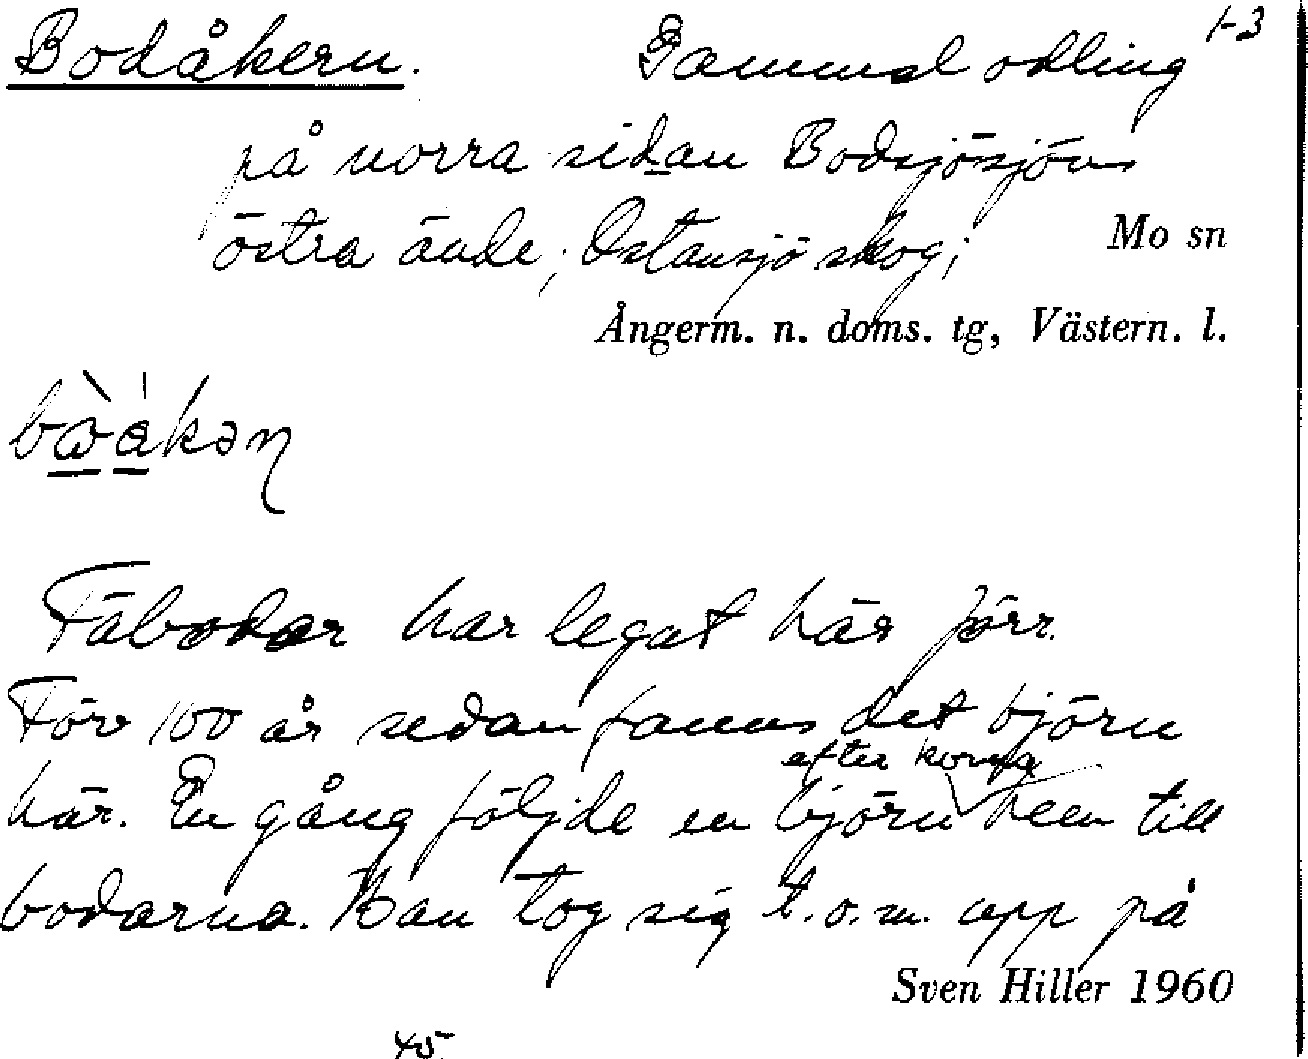 Bodåkern. Gammal odling 1-3
på norra sidan Bodsjösjöns
östra ände; Östansjö skog; Mo sn
Ångerm. n. doms. tg, Västern. l.
bɷ̀ákən
Fäbodar har legat här förr.
För 100 år sedan fanns det björn
efter korna
här. En gång följde en björn hem till
bodarna. Han tog sig t.o.m. upp på
Sven Hiller 1960
45